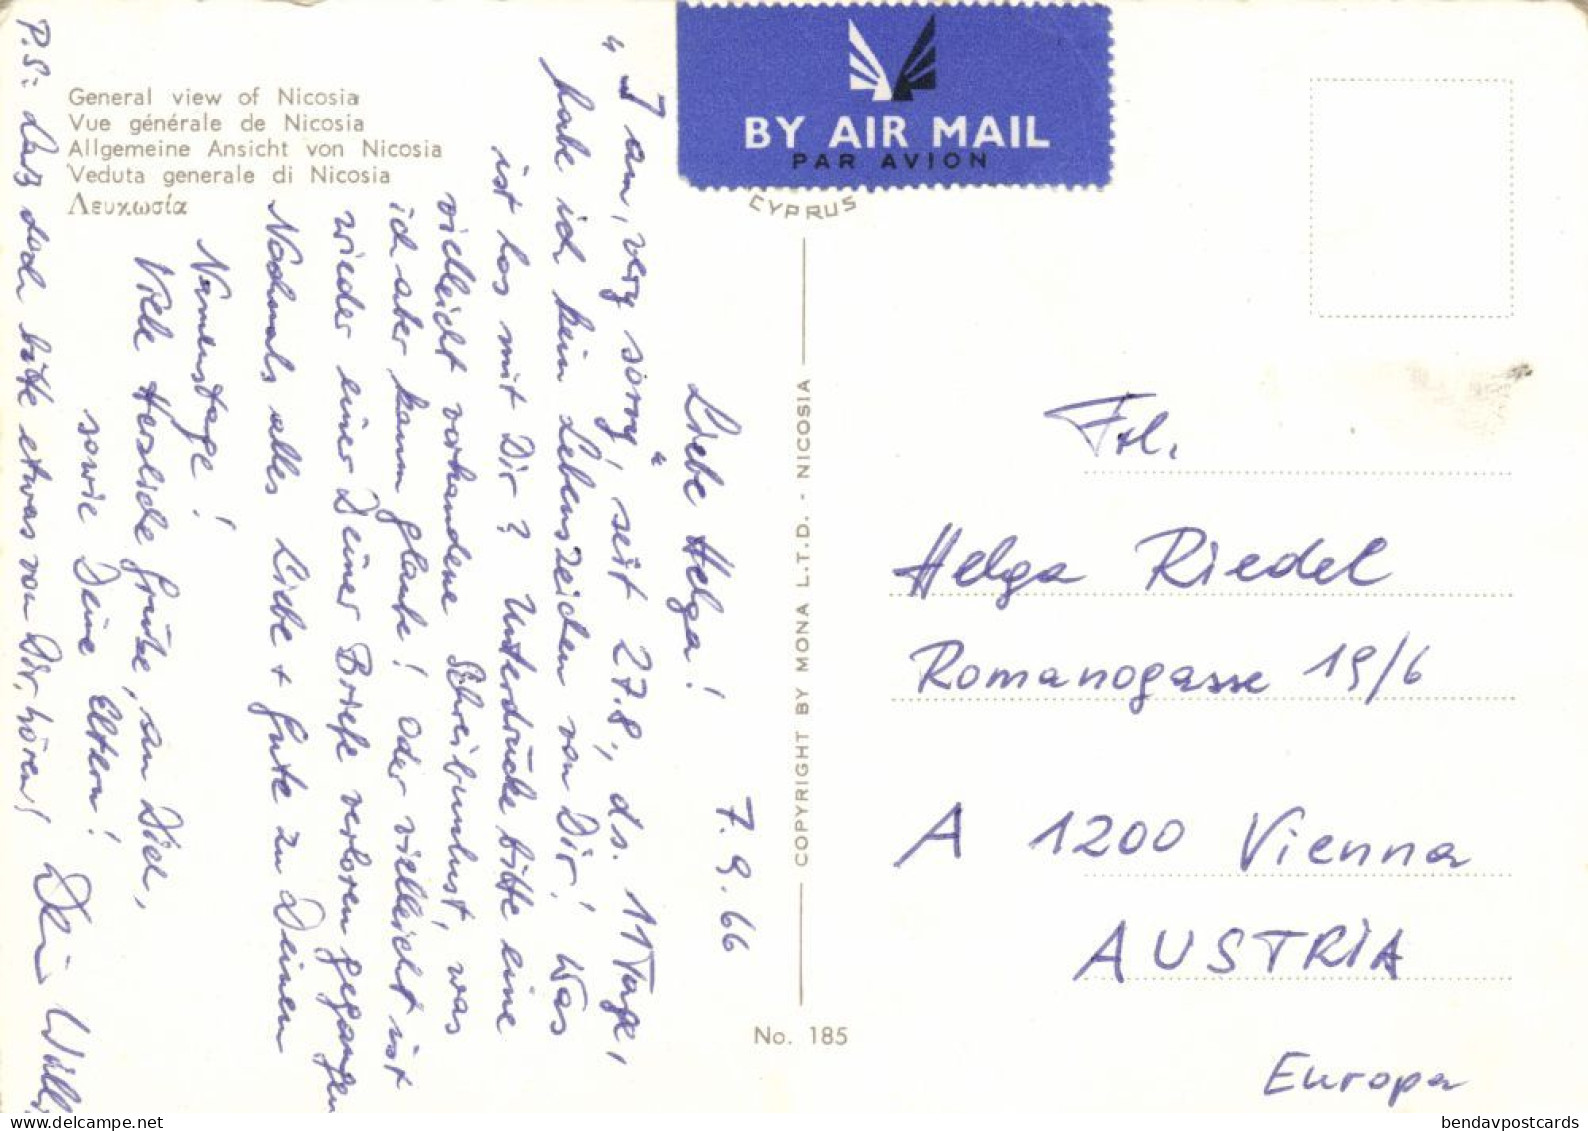 General view of Nicosia
Vue générale de Nicosia
Allgemeine Ansicht von Nicosia
Veduta generale di Nicosia
Λευκωσία
BY AIR MAIL
PAR AVION
CYPRUS
7.9.66
Liebe Helga!
"I am, very sorry", seit 27.8, ds. 11 Tage,
habe ich kein Lebenszeichen von Dir! Was
ist los mit Dir? Unterdrücke bitte eine
vielleicht vorhandene Schreibunlust, was
ich aber kaum glaube! Oder vielleicht ist
wieder einer Deiner Briefe verloren gegangen
Nochmals alles Liebe + Gute zu Deinem
Namenstage!
Viele Herzliche Grüße, an Dich,
sowie Deine Eltern!
Dein Willi
P.S: Laß doch bitte etwas von Dir, hören!
COPYRIGHT BY MONA L.T.D. - NICOSIA
No. 185
Frl.
Helga Riedel
Romanogasse 19/6
A 1200 Vienna
AUSTRIA
Europa
bendavpostcards